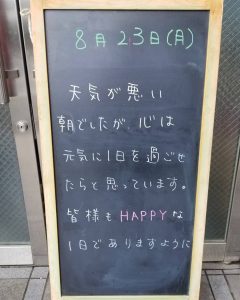 8月23日(月)
天気が悪い
朝でしたが、心は
元気に1日を過ごせ
たらと思っています。
皆様もHAPPYな
1日でありますように